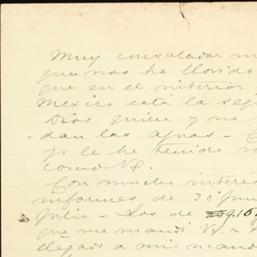 Muy consolador
que nos ha llovido
que en el interior
Mexico está la
Dios quien y no
dan las aguas -
yo le he tenido
como V.
Con mucho interés
informes de 30
Julio - Los de
que me mandó V. a
llegado a mis manos